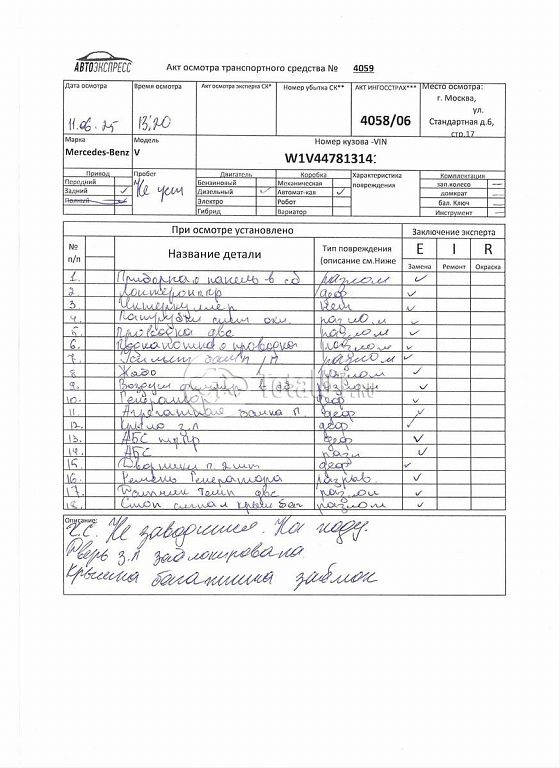 АВТОЭКСПРЕСС
Акт осмотра транспортного средства № 4059
Дата осмотра
11.06.25
Время осмотра
13:20
Акт осмотра эксперта СК*
Номер убытка СК**
АКТ ИНГОССТРАХ***
4058/06
Место осмотра:
г. Москва,
ул.
Стандартная д.6,
стр.17
Марка
Mercedes-Benz
Модель
V
Номер кузова -VIN
W1V44781314
Привод
Передний
Задний ✓
Полный
Пробег
Не уст
Двигатель
Бензиновый
Дизельный ✓
Электро
Гибрид
Коробка
Механическая
Автомат-кая ✓
Робот
Вариатор
Характеристика
повреждения
Комплектация
зап.колесо —
домкрат —
бал. Ключ —
Инструмент —
При осмотре установлено
Заключение эксперта
№
п/п
Название детали
Тип повреждения
(описание см.Ниже
E I R
Замена Ремонт Окраска
1. Приборная панель в сб разлом ✓
2. деф ✓
3. Интеркуллер ✓
4. Патрубки сист охл. разлом ✓
5. Проводка двс разлом ✓
6. Подкапотная проводка разлом ✓
7. разлом ✓
8. Жабо разлом ✓
9. Воздуш фильтр в сб разлом ✓
10. Генератор деф ✓
11. деф ✓
12. Крыло з.л деф ✓
13. АБС деф ✓
14. АБС разл ✓
15. Дворники п. 2 шт деф ✓
16. Ремень Генератора разрыв. ✓
17. Датчик темп двс разлом ✓
18. Стоп сигнал крыш баг разлом ✓
Описание:
Т.С. Не заводится. На ходу.
Дверь з.л заблокирована
Крышка багажника заблок